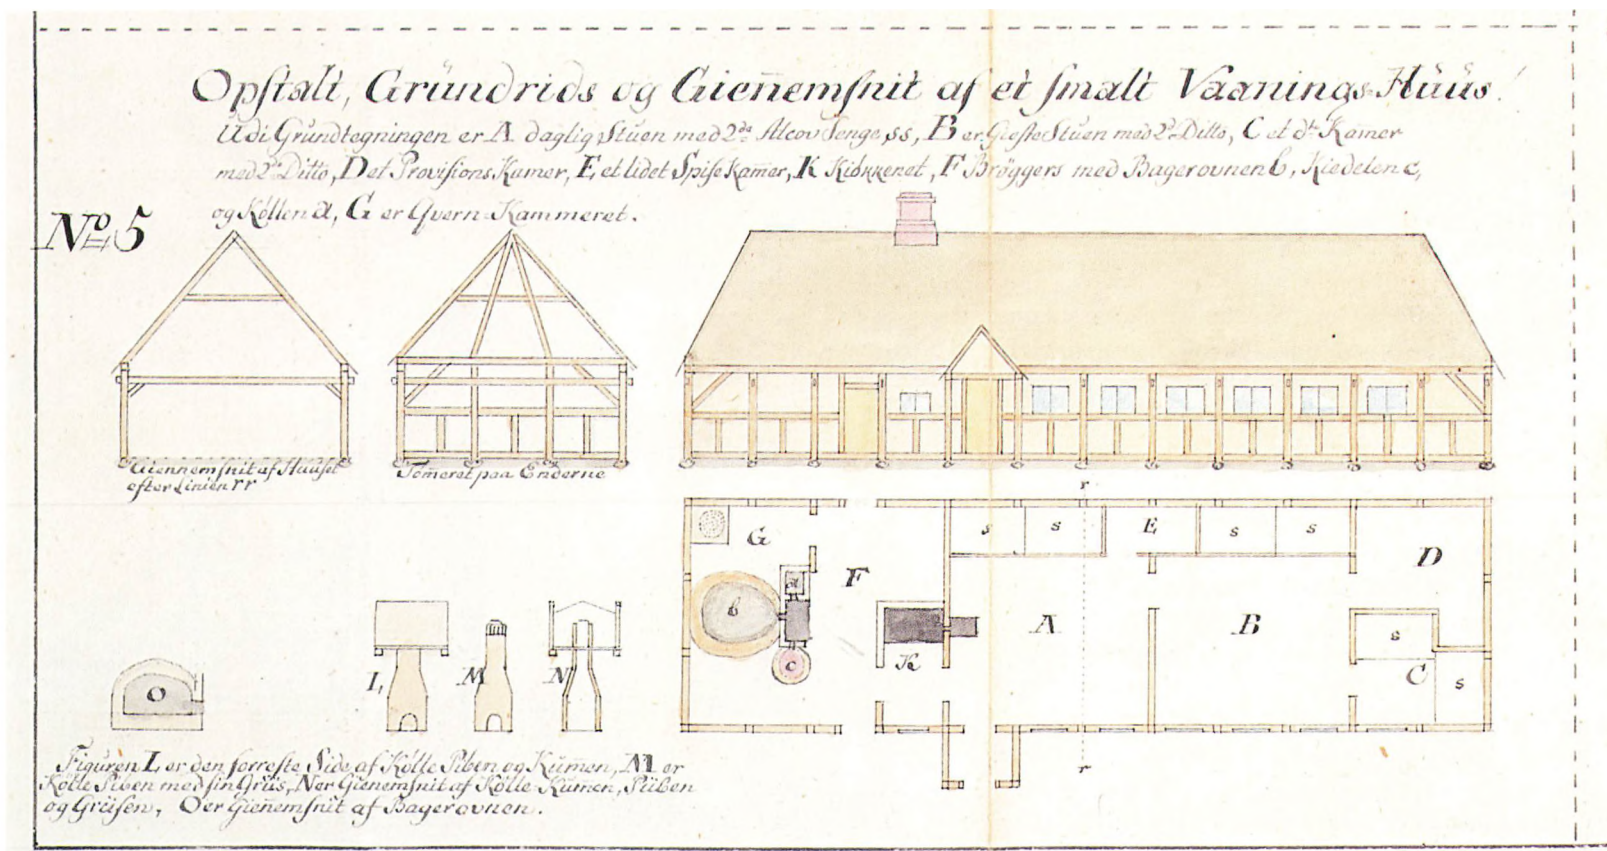 Opſtalt, Grundrids og Gien̄emſnit af et ſmalt Vaanings-Huus!
Udi Grundtegningen er A daglig Stuen med 2de Alcov Senge ss, B er Gieſte Stuen med 2de Ditto, C et do Kam̄er
med 2de Ditto, D et Proviſions Kam̄er, E et lidet Spiſe Kam̄er, K Kiökkenet, F Bröggers med Bagerovnen b, Kiedelen c,
og Köllen a, G er Qvern-Kammeret.
No 5
Giennemſnit af Huuſet
efter Linien r r
Tömeret paa Enderne
r
G
s
s
E
s
s
D
F
a
b
c
K
A
B
s
C
s
r
O
L
M
N
Figuren L er den forreſte Side af Kölle Piben og Kum̄en, M er
Kölle Piben med ſin Grüs, N er Gienemſnit af Kölle-Kum̄en, Piiben
og Grüſen, O er Gien̄emſnit af Bagerovnen.